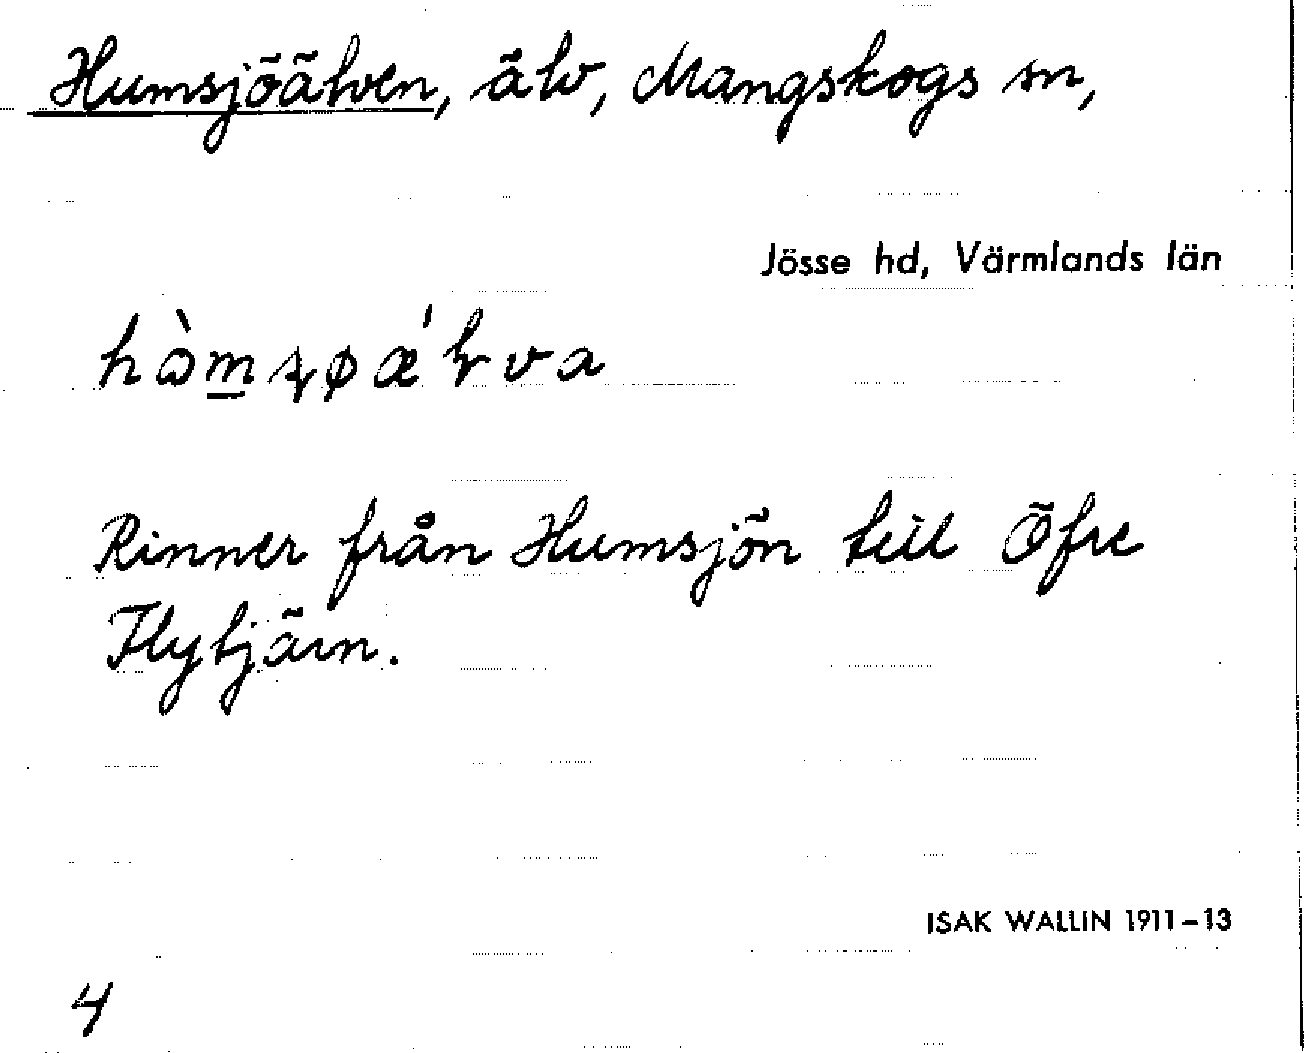 Humsjöälven, älv, Mangskogs sn,
Jösse hd, Värmlands län
Rinner från Humsjön till Öfre
Flytjärn.
ISAK WALLIN 1911–13
4